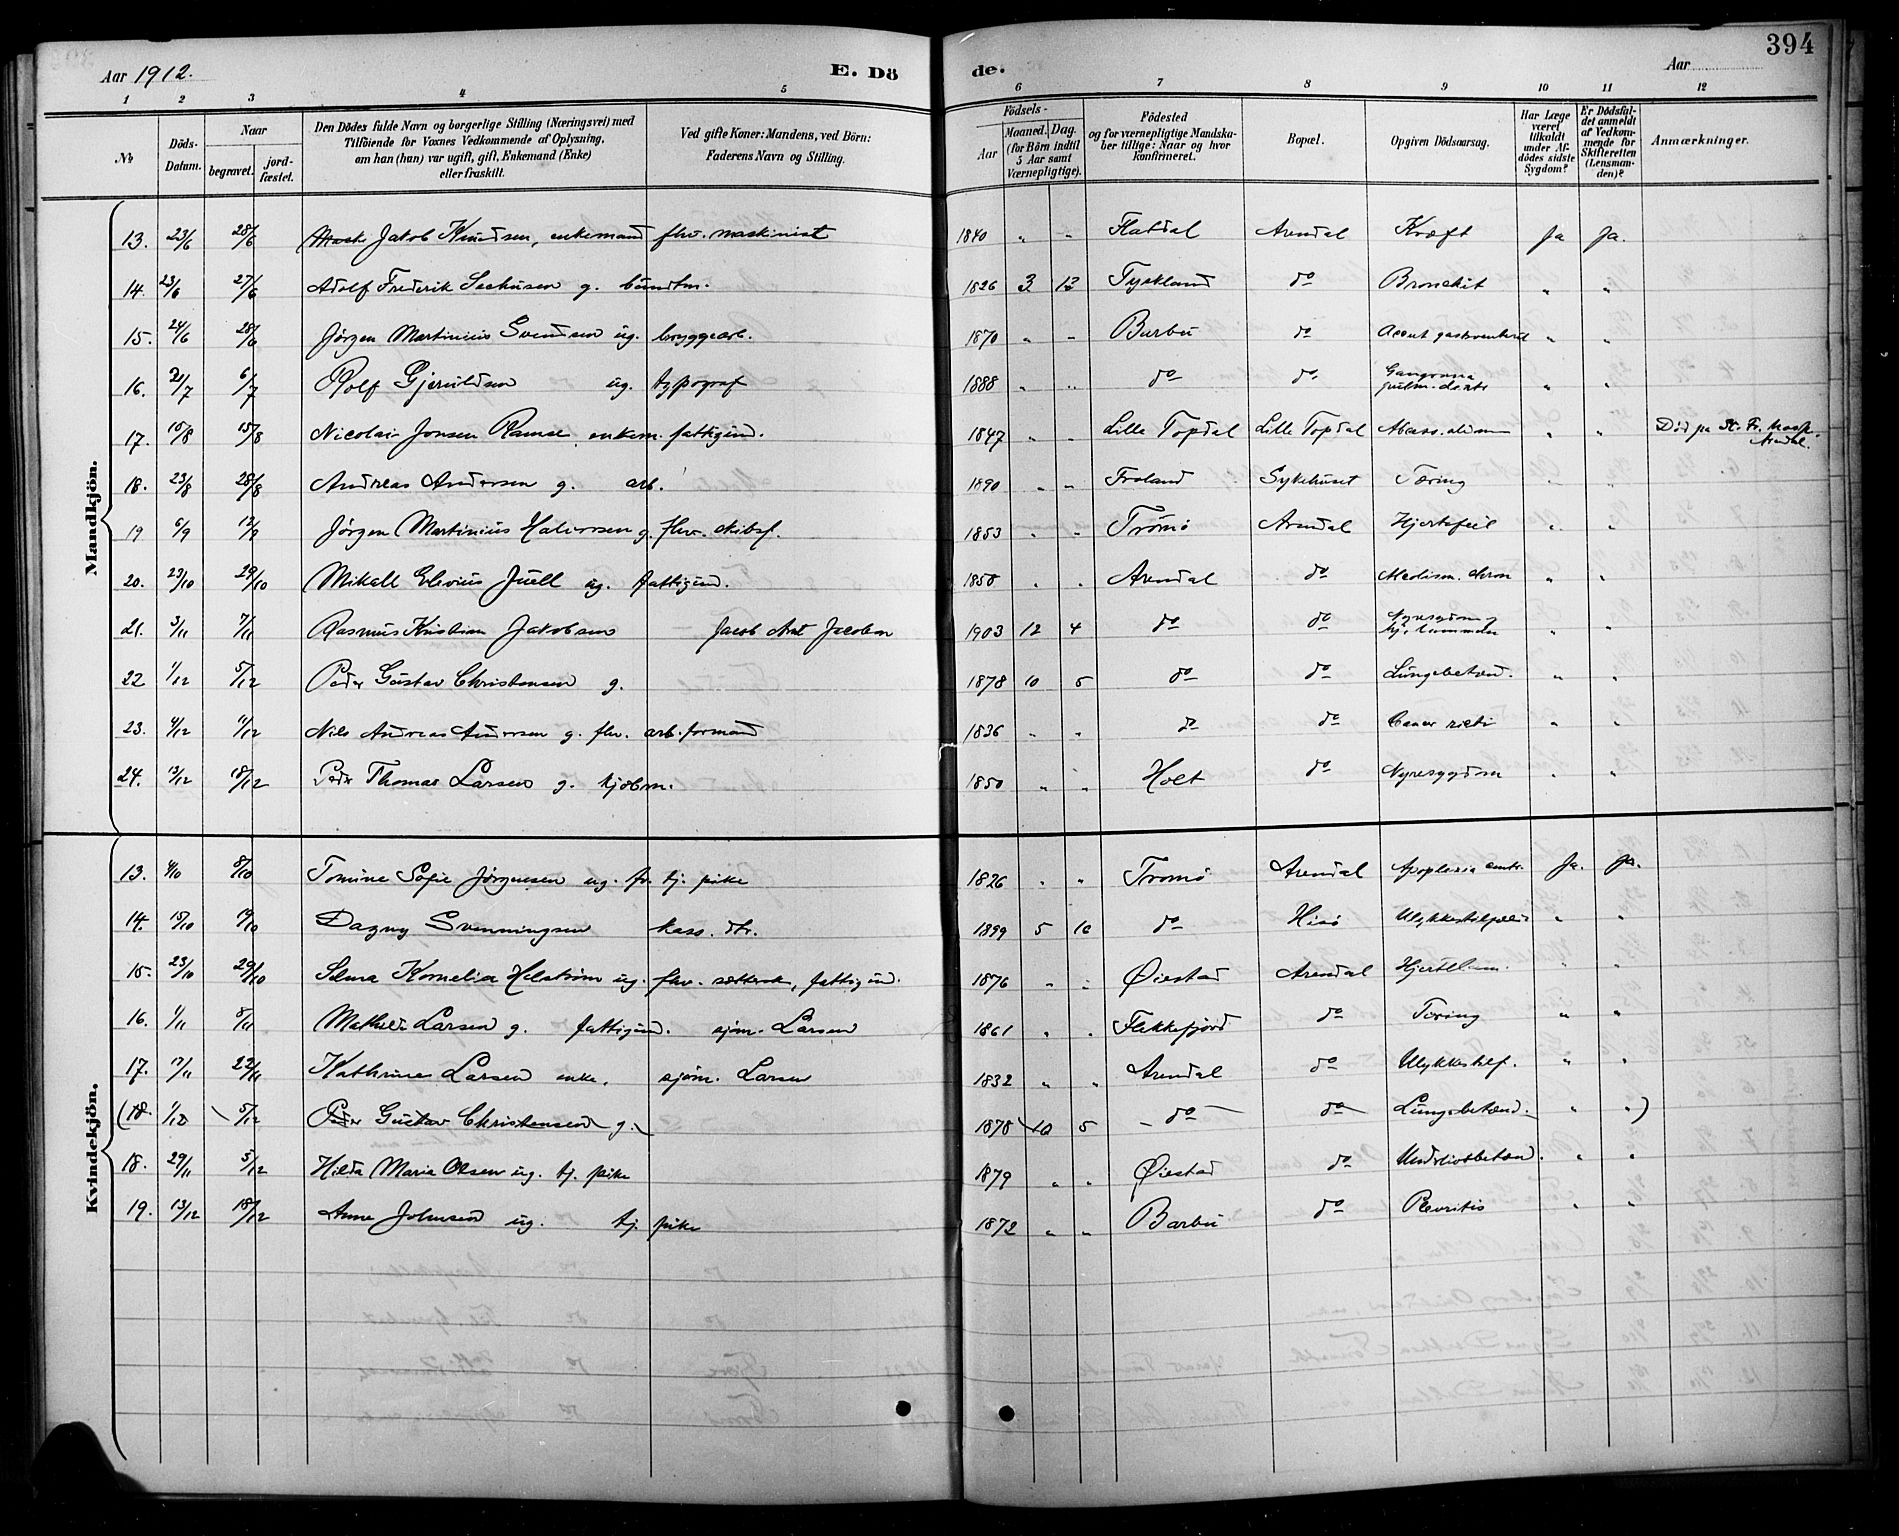 394
Aar 1912.
E. Dö de.
Aar
1 2 3 4 5 6 7 8 9 10 11 12
No
Döds-Datum.
Naar begravet. jordfæstet.
Den Dödes fulde Navn og borgerlige Stilling (Næringsvei) med Tilföiende for Voxnes Vedkommende af Oplysning, om han (hun) var ugift, gift, Enkemand (Enke) eller fraskilt.
Ved gifte Koner: Mandens, ved Börn: Faderens Navn og Stilling.
Födsels-
Aar
Maaned. Dag. (for Börn indtil 5 Aar samt Værnepligtige).
Födested og for værnepligtige Mandskaber tillige: Naar og hvor konfirmeret.
Bopæl.
Opgiven Dödsaarsag.
Har Læge været tilkaldt under Afdödes sidste Sygdom?
Er Dödsfaldet anmeldt af Vedkommende for Skifteretten (Lensmanden)?
Anmærkninger.
Mandkjön.
13. 23/6 28/6 Jakob Knudsen, enkemand flw. maskinist 1840 " " Flatdal Arendal Kræft Ja Ja.
14. 23/6 27/6 Adolf Frederik Seehusen g. bundtm. 1826 3 13 Tyskland do Bronchit " "
15. 24/6 28/6 Jørgen Martinius Svendsen ug. bryggearb. 1870 " " Barbu do Acout gastroenterit " "
16. 2/7 6/7 Rolf Gjeruldsen ug. typograf 1888 " " do do Gangræna pulm. " "
17. 15/8 15/8 Nicolai Jonsen Ramse enkem. fattigund. 1847 " " Lille Topdal Lille Topdal " " Død paa St. Fr. Hosp. Arendal.
18. 23/8 28/8 Andreas Andersen g. arb. 1890 " " Froland Sykehuset Tæring
19 6/9 12/9 Jørgen Martinius Halvorsen g. flw. skibsf. 1853 " " Tromø Arendal Hjertefeil " "
20. 23/10 29/10 Mikall Elevius Juell ug. fattigund. 1850 " " Arendal do " "
21. 3/11 7/11 Rasmus Kristian Jakobsen Jacob Arnt Jacobsen 1903 12 4 do do Nyresygdom og " "
22 1/12 5/12 Peder Gustav Christensen g. 1878 10 5 do do Lungebetænd. " "
23. 4/12 11/12 Nils Andreas Andersen g. flw. arb. formand 1836 " " do do Cancer " "
24. 13/12 18/12 Peder Thomas Larsen g. kjøbm. 1850 " " Holt do Nyresygdom " "
Kvindekjön.
13. 4/10 8/10 Tomine Sofie Jørgensen ug. fv. tj. pike 1826 " " Tromø Arendal Apoplexia Ja. Ja.
14. 15/10 19/10 Dagny Svenningsen kass. dtr. 1899 5 16 do Hisø Ulykkestilfælde " "
15. 23/10 29/10 Selma Kornelia Helstrøm ug. flw. fattigund. 1876 " " Øiestad Arendal Hjertelam. " "
16. 1/11 8/11 Mathilde Larsen g. fattigund. sjøm. Larsen 1861 " " Flekkefjord do Tæring " "
17. 17/11 22/11 Kathrine Larsen enke. sjøm. Larsen 1832 " " Arendal do Ulykkestilf. " "
(18. 1/12 5/12 Peder Gustav Christensen g. 1878 10 5 do do Lungebetænd. " ")
18. 29/11 5/12 Hilda Maria Olsen ug. tj. pike 1879 " " Øiestad do Underlivsbetænd. " "
19. 13/12 18/12 Anne Johnsen ug. tj. pike 1872 " " Barbu do Plevritis " "